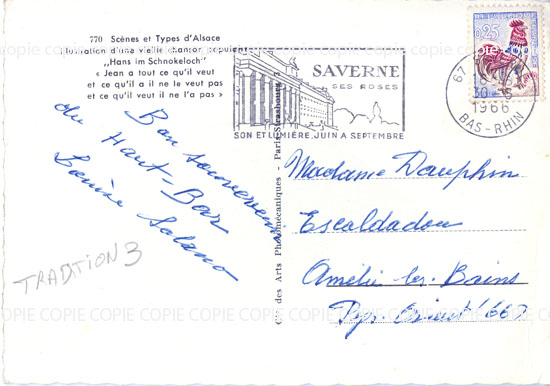 770 Scènes et Types d'Alsace
Illustration d'une vieille chanson populaire
,,Hans im Schnokeloch"
« Jean a tout ce qu'il veut
et ce qu'il a il ne le veut pas
et ce qu'il veut il ne l'a pas »
Bon souvenir
du Haut-Bar
Louise Solano
TRADITION 3
C. des Arts Photomécaniques - Paris-Strasbourg
SAVERNE
SES ROSES
SON ET LUMIÈRE, JUIN A SEPTEMBRE
0,25
67
30 - 5
1966
BAS-RHIN
Madame Dauphin
Escaldadou
Amélie-les-Bains
Pyr. Orient (66)
COPIE COPIE COPIE COPIE COPIE COPIE